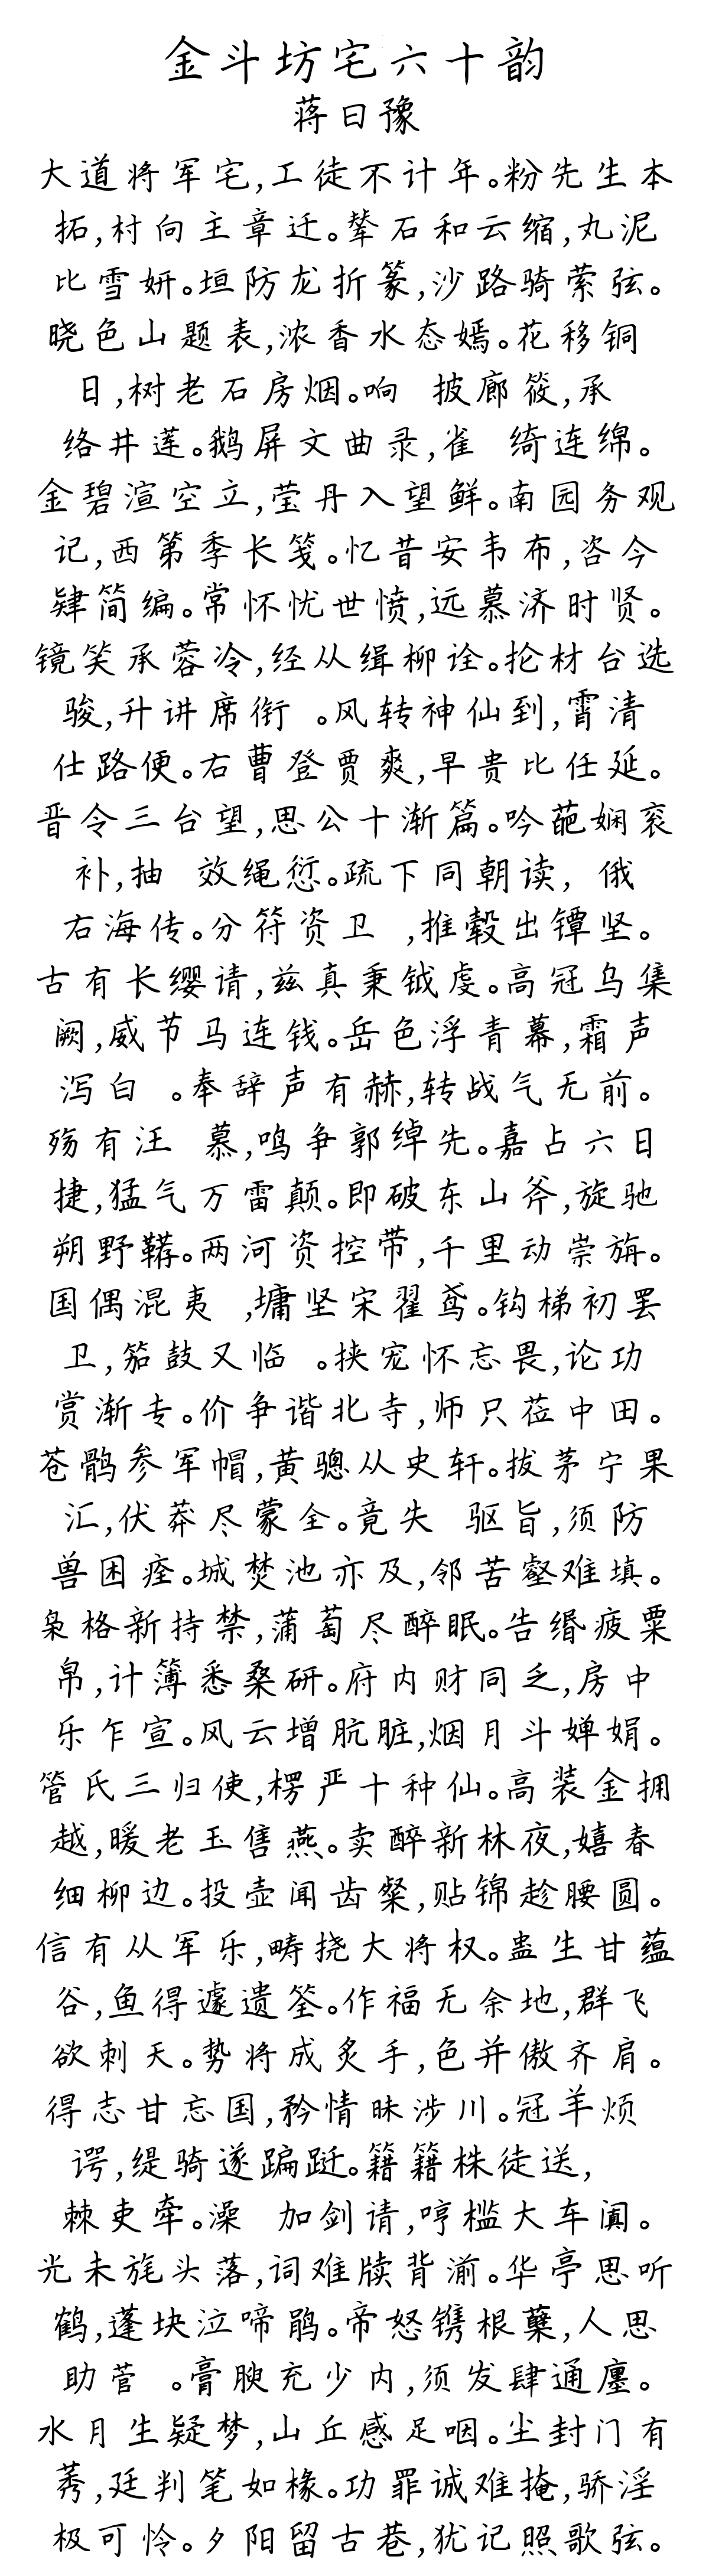 金斗坊宅六十韵
蒋曰豫
大道将军宅,工徒不计年。粉先生本
拓,村向主章迁。辇石和云缩,丸泥
比雪妍。垣防龙折篆,沙路骑萦弦。
晓色山题表,浓香水态嫣。花移铜
日,树老石房烟。响 披廊筱,承
络井莲。鹅屏文曲录,雀 绮连绵。
金碧渲空立,莹丹入望鲜。南园务观
记,西第季长笺。忆昔安韦布,咨今
肄简编。常怀忧世愤,远慕济时贤。
镜笑承蓉冷,经从缉柳诠。抡材台选
骏,升讲席衔 。风转神仙到,霄清
仕路便。右曹登贾爽,早贵比任延。
晋令三台望,思公十渐篇。吟葩娴衮
补,抽 效绳愆。疏下同朝读, 俄
右海传。分符资卫 ,推毂出镡坚。
古有长缨请,兹真秉钺虔。高冠乌集
阙,威节马连钱。岳色浮青幕,霜声
泻白 。奉辞声有赫,转战气无前。
殇有汪 慕,鸣争郭绰先。嘉占六日
捷,猛气万雷颠。即破东山斧,旋驰
朔野鞯。两河资控带,千里动崇旃。
国偶混夷 ,墉坚宋翟鸢。钩梯初罢
卫,笳鼓又临 。挟宠怀忘畏,论功
赏渐专。价争谐北寺,师只莅中田。
苍鹘参军帽,黄骢从史轩。拔茅宁果
汇,伏莽尽蒙全。竟失 驱旨,须防
兽困痊。城焚池亦及,邻苦壑难填。
枭格新持禁,蒲萄尽醉眠。告缗疲粟
帛,计簿悉桑研。府内财同乏,房中
乐乍宣。风云增肮脏,烟月斗婵娟。
管氏三归使,楞严十种仙。高装金拥
越,暖老玉售燕。卖醉新林夜,嬉春
细柳边。投壶闻齿粲,贴锦趁腰圆。
信有从军乐,畴挠大将权。蛊生甘蕴
谷,鱼得遽遗筌。作福无余地,群飞
欲刺天。势将成炙手,色并傲齐肩。
得志甘忘国,矜情昧涉川。冠羊烦
谔,缇骑遂蹁跹。籍籍株徒送,
棘吏牵。澡 加剑请,哼槛大车阗。
光未旄头落,词难牍背湔。华亭思听
鹤,蓬块泣啼鹃。帝怒镌根蘖,人思
助菅 。膏腴充少内,须发肆通廛。
水月生疑梦,山丘感足咽。尘封门有
莠,廷判笔如椽。功罪诚难掩,骄淫
极可怜。夕阳留古巷,犹记照歌弦。